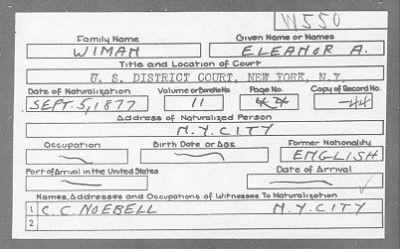 W550
Family Name Given Name or Names
WIMAN ELEANOR A.
Title and Location of Court
U. S. DISTRICT COURT, NEW YORK, N.Y.
Date of Naturalization Volume or Bundle No. Page No. Copy of Record No.
SEPT. 5, 1877 11 44
Address of Naturalized Person
N.Y. CITY
Occupation Birth Date or Age Former Nationality
ENGLISH
Port of Arrival in the United States Date of Arrival
Names, Addresses and Occupations of Witnesses To Naturalization
1 C. C. NOEBELL N.Y. CITY
2